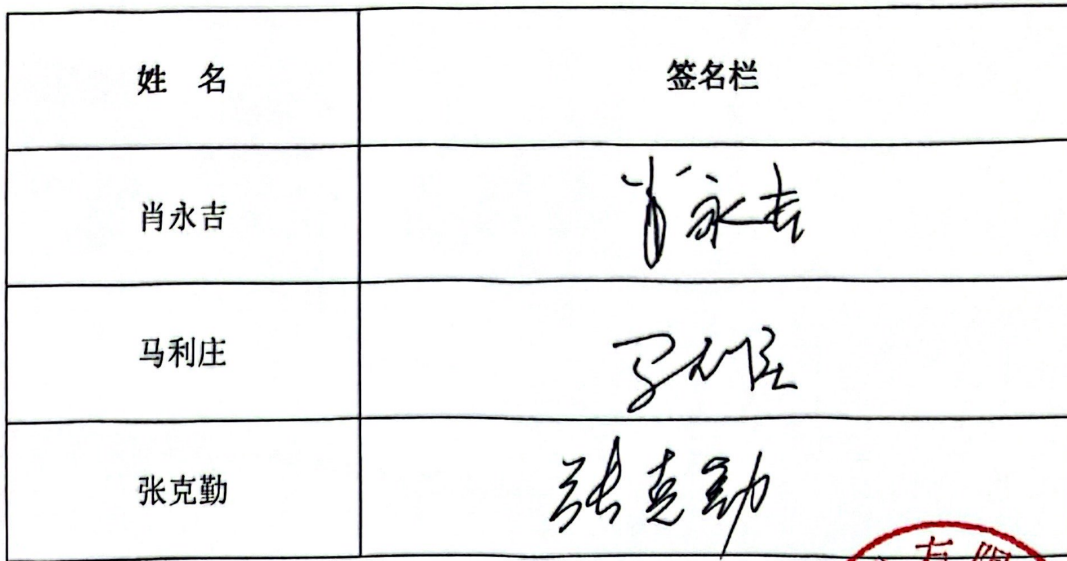 姓 名 签名栏
肖永吉 肖永吉
马利庄 马利庄
张克勤 张克勤
有限